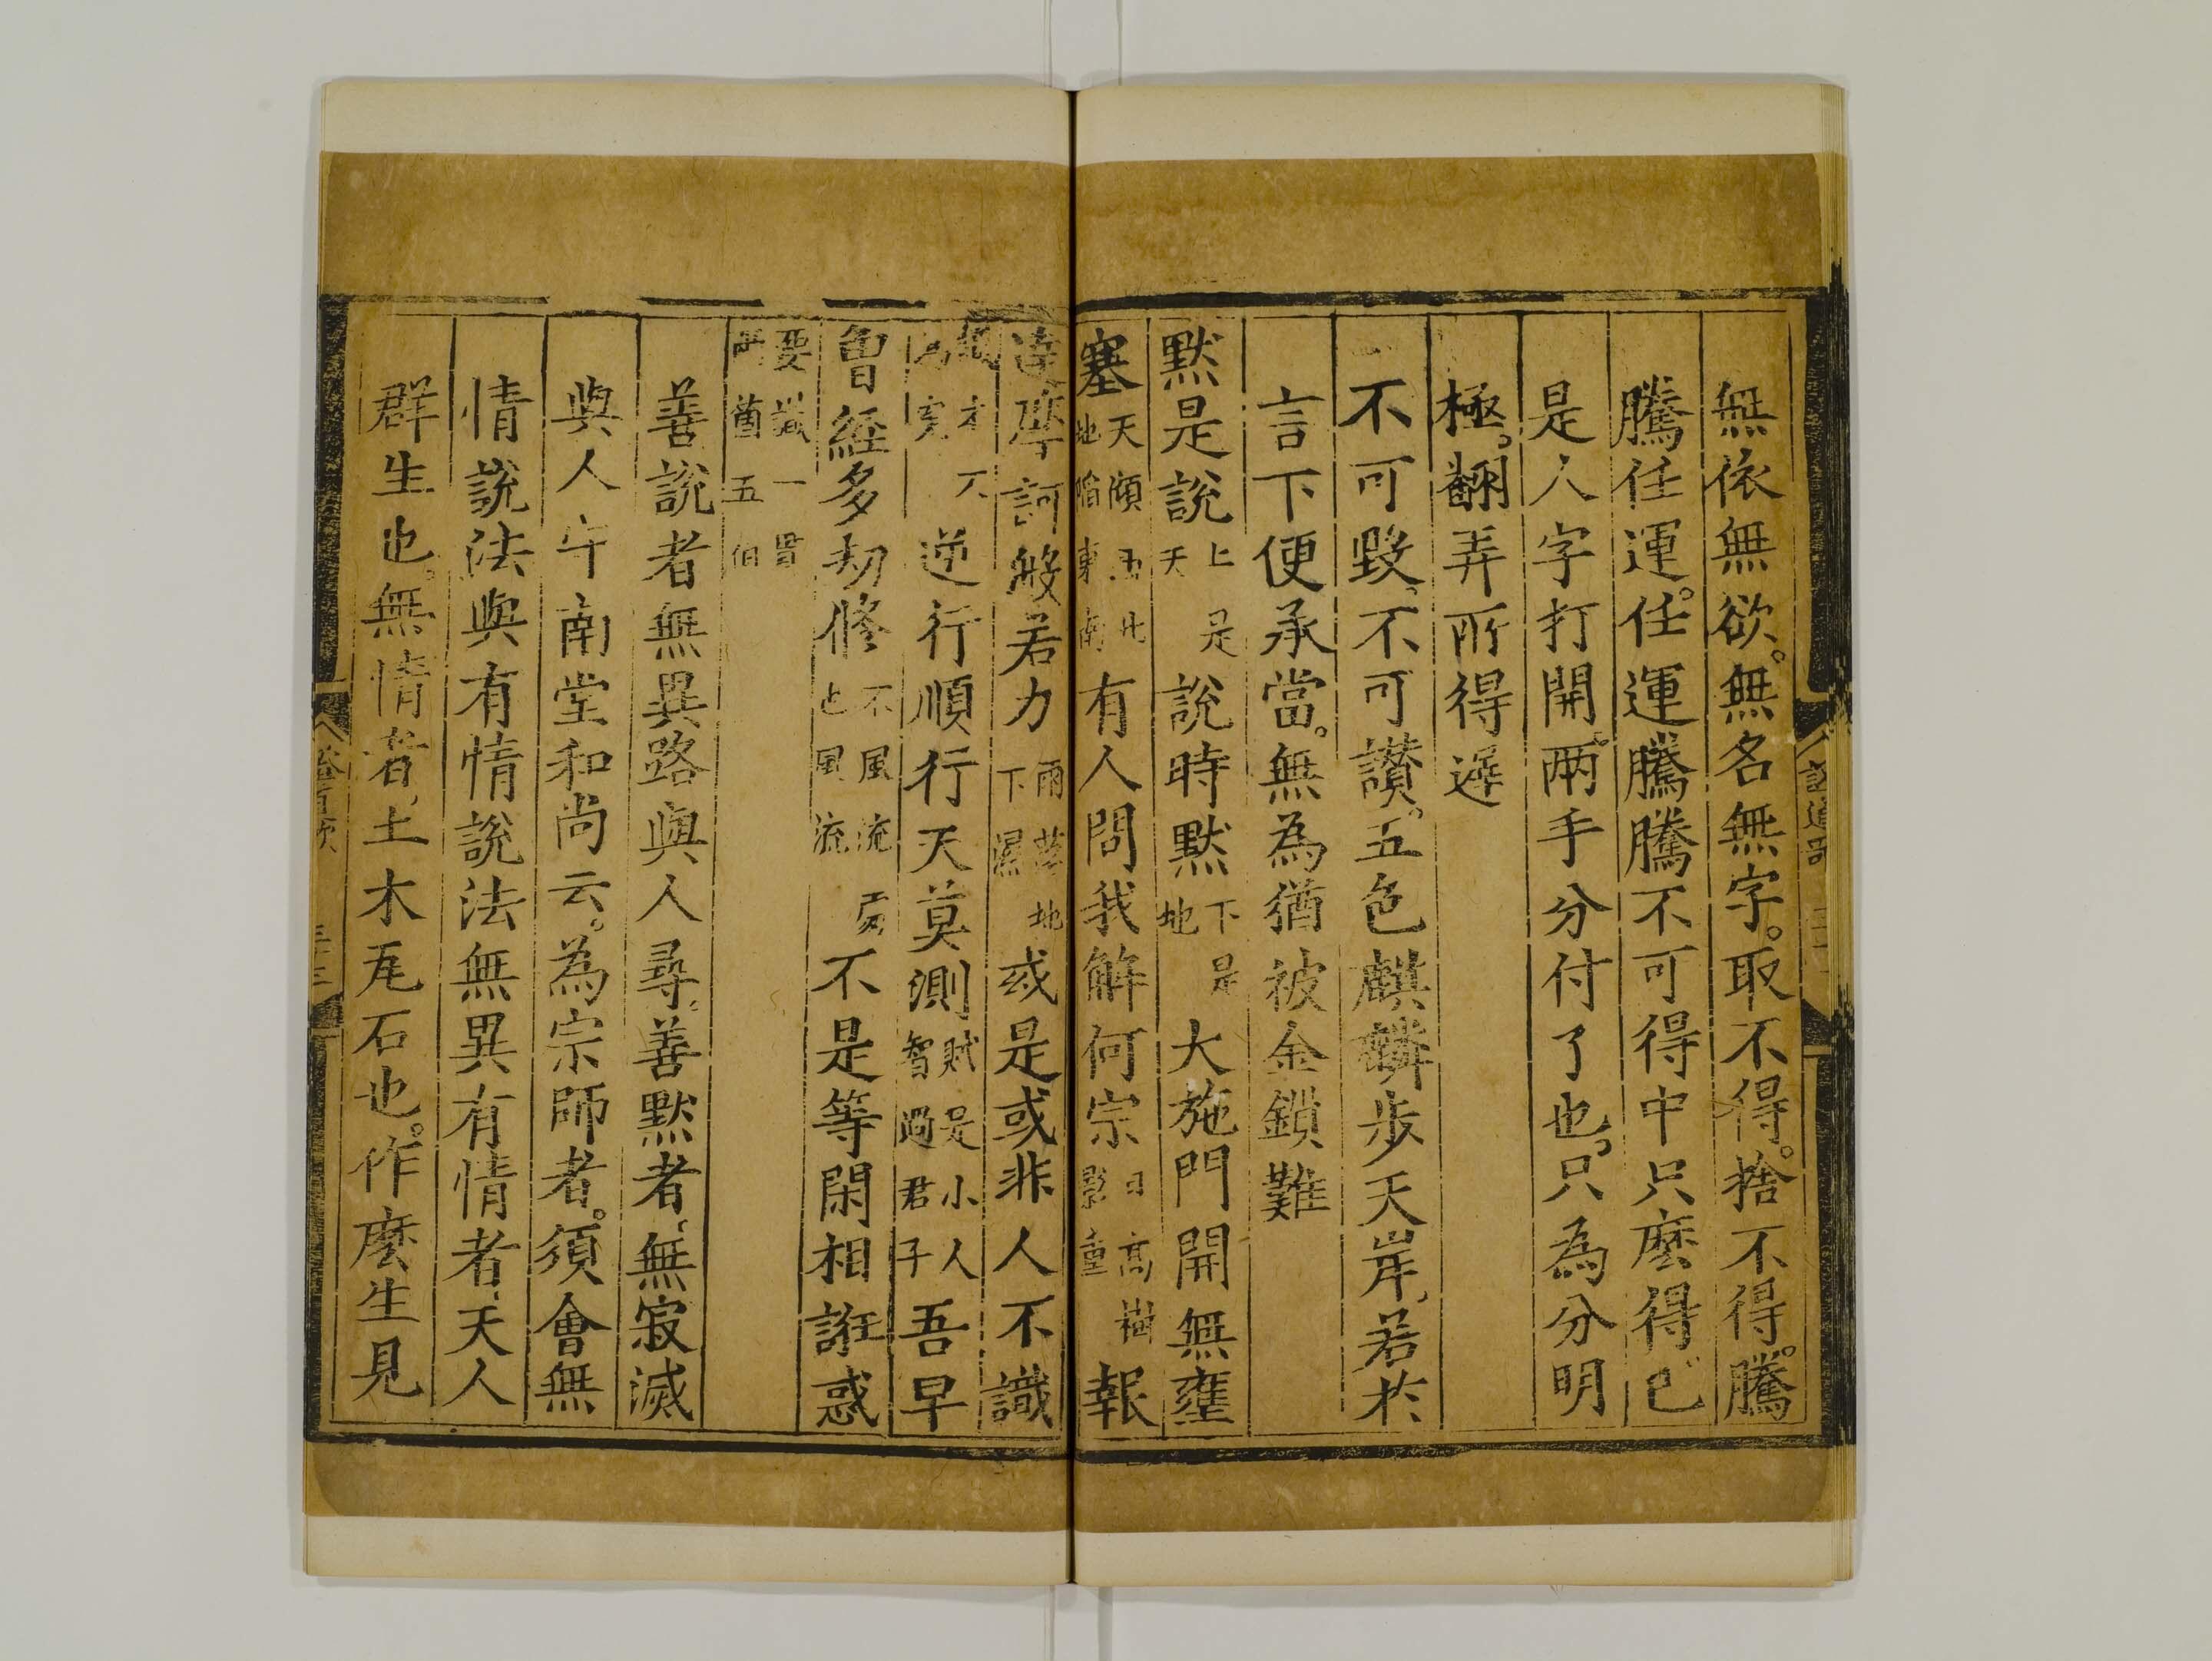 無依無欲。無名無字。取不得。捨不得。騰
騰任運。任運騰騰不可得中只麽得。已
是八字打開。兩手分付了也。只為分明
極。翻弄所得遲
不可毀、不可讚。五色麒麟步天岸、若於
言下便承當。無為猶被金鎖難
默是說上是天說時默下是地大施門開無壅
塞天傾西北地陷東南有人問我解何宗日高樹影重報
道摩訶般若力雨落地下濕或是或非人不識
逆行順行天莫測賊是小人智過君子吾早
曾經多劫修不風流處也風流不是等閑相誑惑
要識一貫兩箇五伯
善說者無異路與人尋。善默者、無寂滅
與人守南堂和尚云。為宗師者。須會無
情說法與有情說法無異有情者、天人
群生也。無情者、土木瓦石也。作麽生見
證道歌